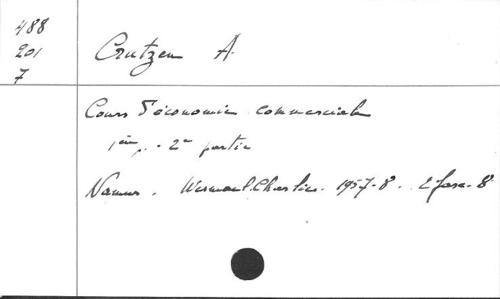 488
201
7
Crutzen A.
Cours d'économie commerciale
1ère p. - 2e partie
Namur. Wesmael-Charlier. 1957-8. 2 fasc. 8